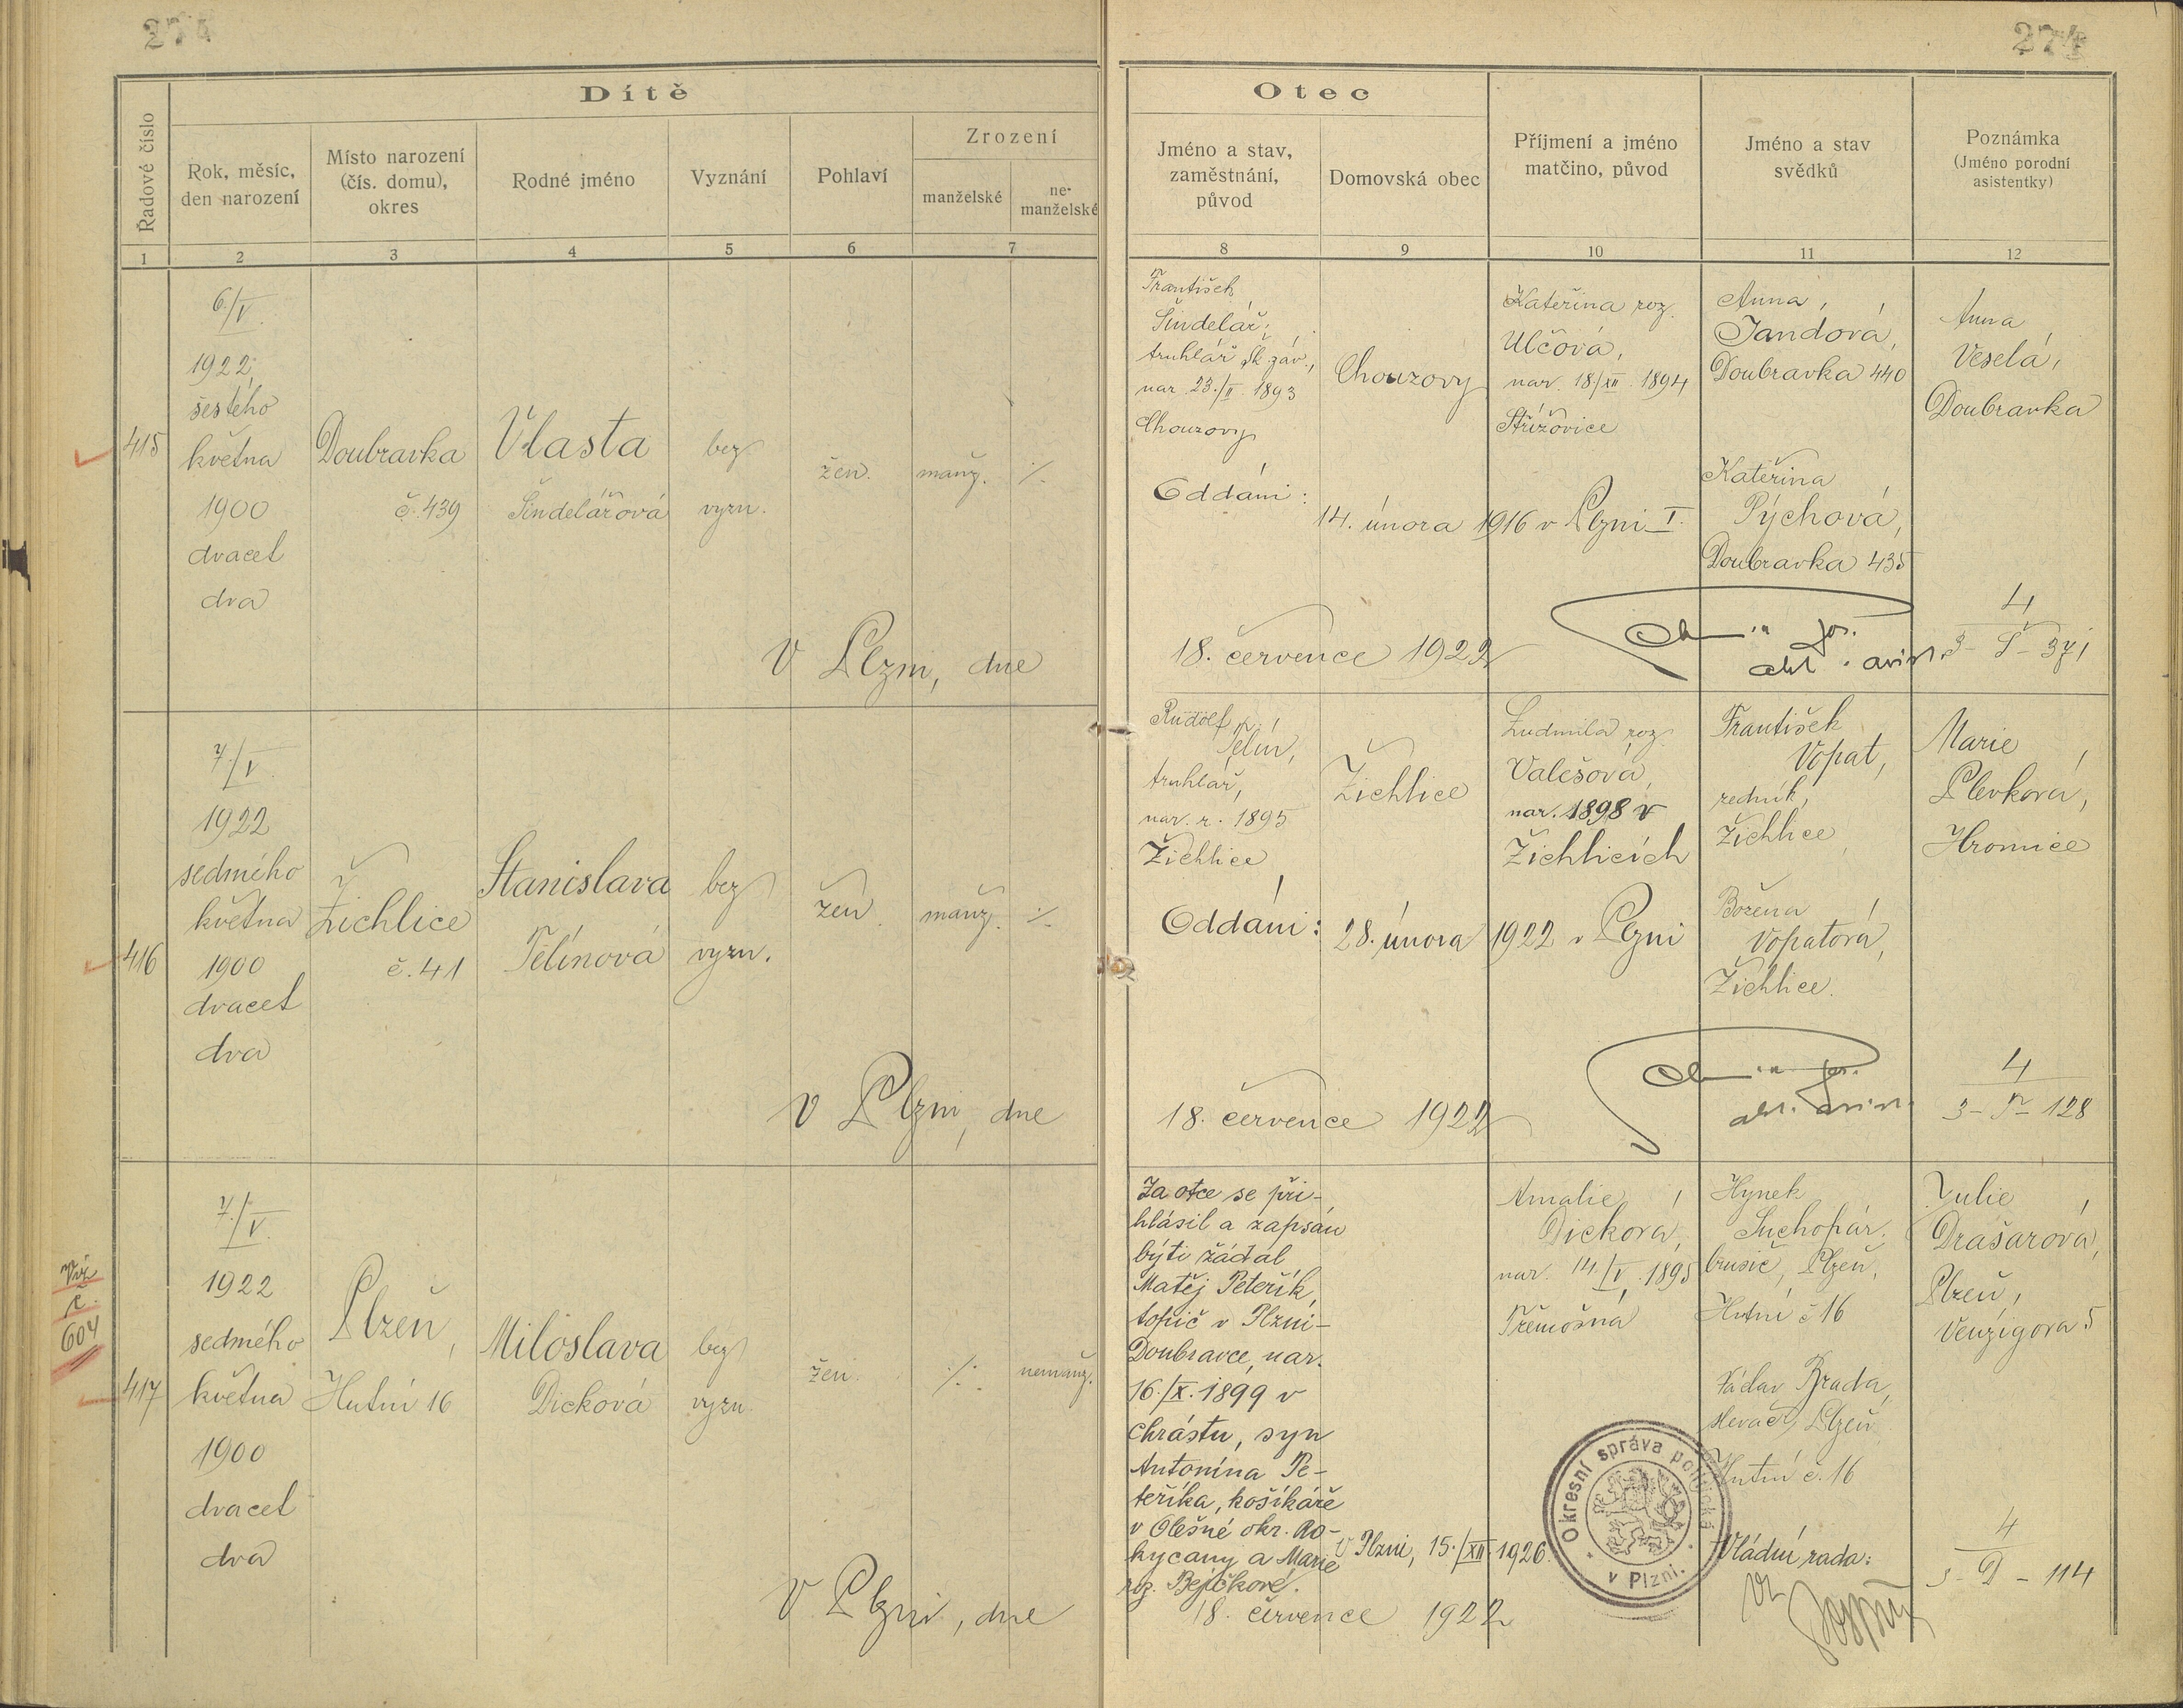 274
274
Dítě
Otec
Řadové číslo
Rok, měsíc,
den narození
Místo narození
(čís. domu),
okres
Rodné jméno
Vyznání
Pohlaví
Zrození
manželské
ne-
manželské
Jméno a stav,
zaměstnání,
původ
Domovská obec
Příjmení a jméno
matčino, původ
Jméno a stav
svědků
Poznámka
(Jméno porodní
asistentky)
1 2 3 4 5 6 7 8 9 10 11 12
415
6./V.
1922
šestého
května
1900
dvacet
dva
Doubravka
č. 439
Vlasta
Šindelářová
bez
vyzn.
žen.
manž.
·/.
František
Šindelář,
truhlář Šk. záv.,
nar. 23./II. 1893
Chouzovy
Chouzovy
Kateřina roz.
Ulčová,
nar. 18./XII. 1894
Střížovice
Anna
Jandová,
Doubravka 440
Kateřina
Pýchová,
Doubravka 435
Anna
Veselá,
Doubravka
Oddáni:
14. února 1916 v Plzni I.
V Plzni, dne
18. července 1922
4
3 - Š - 371
416
7./V.
1922
sedmého
května
1900
dvacet
dva
Žichlice
č. 41
Stanislava
Telínová
bez
vyzn.
žen.
manž.
·/.
Rudolf
Telín,
truhlář,
nar. r. 1895
Žichlice
Žichlice
Ludmila roz.
Valešová,
nar. 1898 v
Žichlicích
František
Vopat,
redník,
Žichlice
Božena
Vopatová,
Žichlice.
Marie
Plevková,
Hromice
Oddáni:
28. února 1922 v Plzni
V Plzni, dne
18. července 1922
4
3 - T - 128
Viz
č.
604
417
7./V.
1922
sedmého
května
1900
dvacet
dva
Plzeň,
Hutní 16
Miloslava
Dicková
bez
vyzn.
žen.
·/.
nemanž.
Za otce se při-
hlásil a zapsán
býti žádal
Matěj Peteřík,
topič v Plzni-
Doubravce, nar.
16./IX. 1899 v
Chrástu, syn
Antonína Pe-
teříka, košíkáře
v Olešné okr. Ro-
kycany a Marie
roz. Bejčkové.
Amalie
Dicková,
nar. 14./V. 1895
Třemošná
Hynek
Suchopár,
brusič, Plzeň,
Hutní č 16
Václav Brada,
slevač, Plzeň
Hutní č. 16
Julie
Drašarová,
Plzeň,
Venzigova 5
V Plzni, 15./XII. 1926.
Okresní správa politická
v Plzni.
Vládní rada:
V Plzni, dne
18. července 1922
4
3 - D - 114